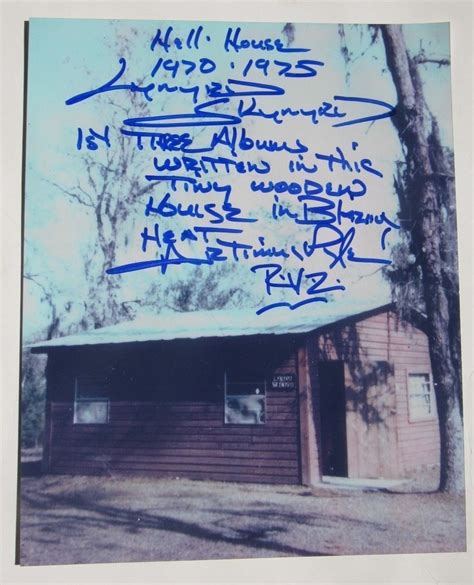 Hell House
1970 - 1975
Lynyrd
Skynyrd
1st Three Albums
written in this
tiny wooden
house in
Heat
Artimus Pyle!